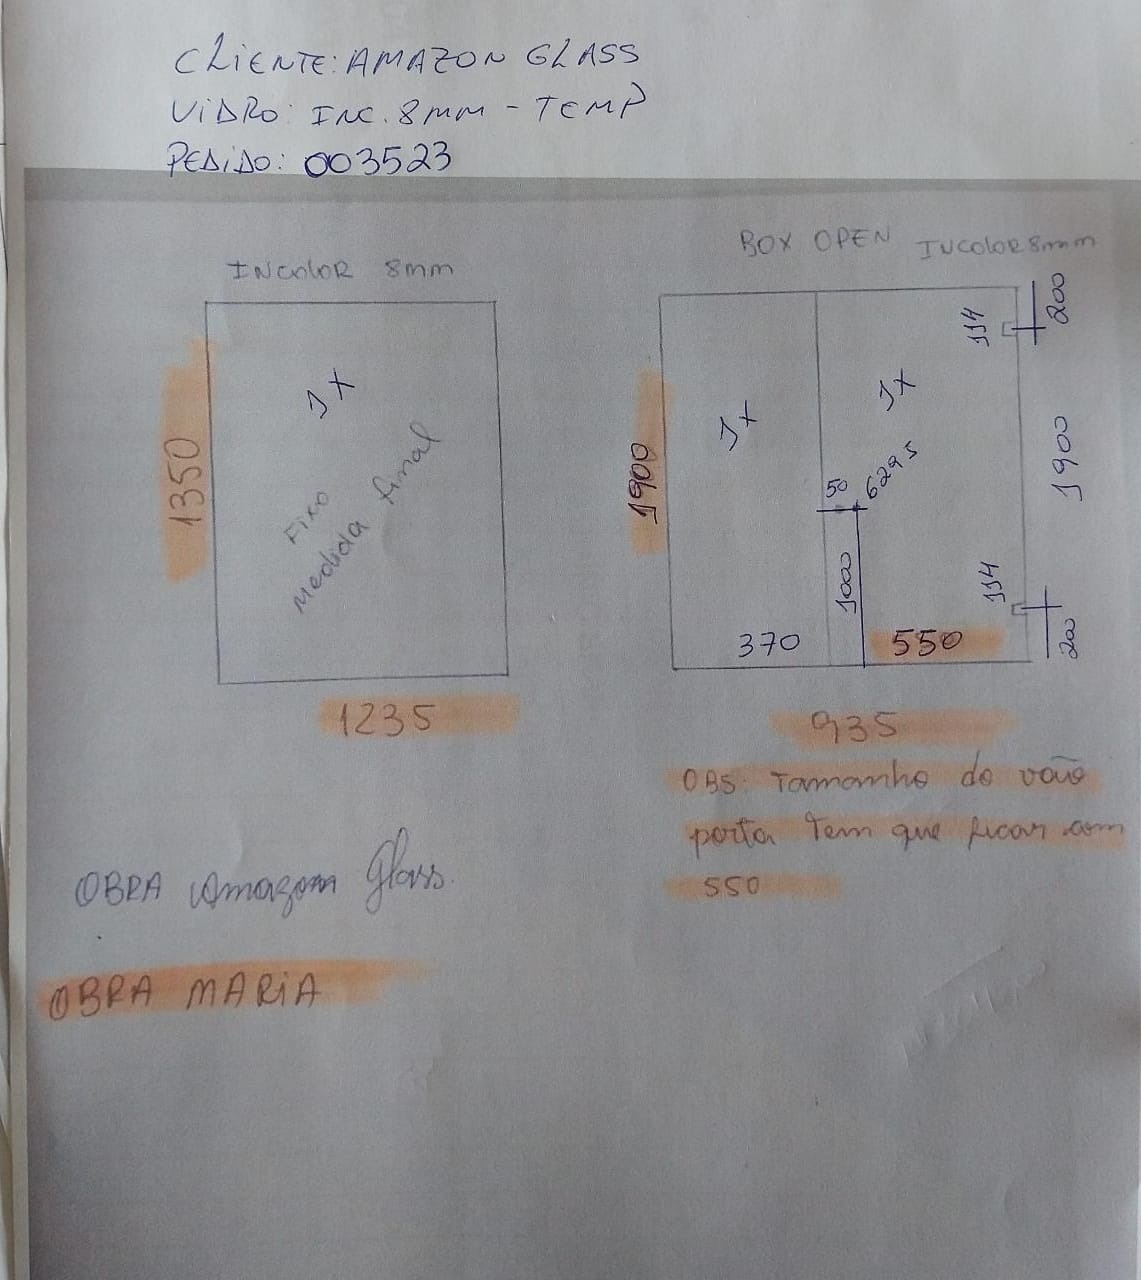 CLIENTE: AMAZON GLASS
VIDRO: INC. 8MM - TEMP
PEDIDO: 003523
INCOLOR 8mm
1350
1X
Fixo
medida final
1235
BOX OPEN INCOLOR 8mm
1900
1X
1X
114
200
1900
50
6295
1000
114
200
370
550
935
OBS: Tamanho do vão
porta Tem que ficar com
550
OBRA Amazon Glass.
OBRA MARIA